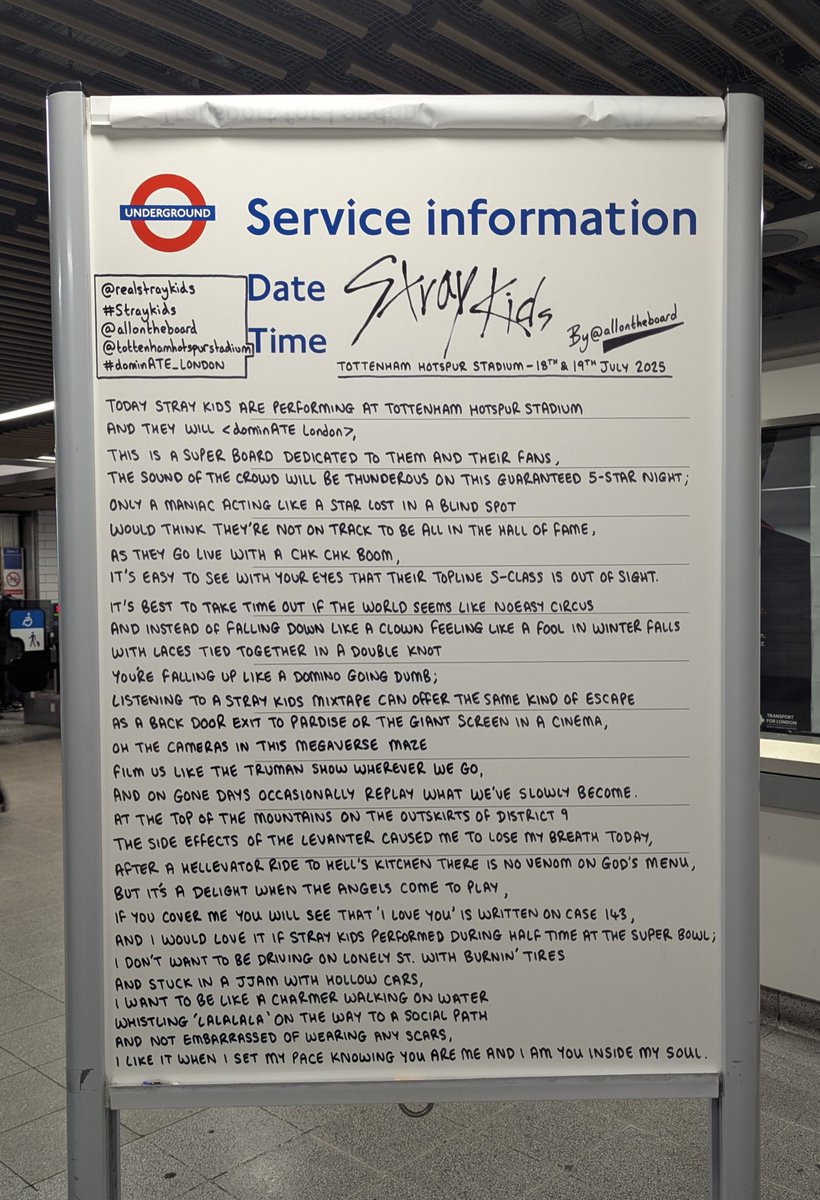 UNDERGROUND
Service information
Date
Stray Kids
Time
By @allontheboard
@realstraykids
#Straykids
@allontheboard
@tottenhamhotspurstadium
#dominATE_LONDON
TOTTENHAM HOTSPUR STADIUM - 18TH & 19TH JULY 2025
TODAY STRAY KIDS ARE PERFORMING AT TOTTENHAM HOTSPUR STADIUM
AND THEY WILL <dominATE London>,
THIS IS A SUPER BOARD DEDICATED TO THEM AND THEIR FANS,
THE SOUND OF THE CROWD WILL BE THUNDEROUS ON THIS GUARANTEED 5-STAR NIGHT;
ONLY A MANIAC ACTING LIKE A STAR LOST IN A BLIND SPOT
WOULD THINK THEY'RE NOT ON TRACK TO BE ALL IN THE HALL OF FAME,
AS THEY GO LIVE WITH A CHK CHK BOOM,
IT'S EASY TO SEE WITH YOUR EYES THAT THEIR TOPLINE S-CLASS IS OUT OF SIGHT.
IT'S BEST TO TAKE TIME OUT IF THE WORLD SEEMS LIKE NOEASY CIRCUS
AND INSTEAD OF FALLING DOWN LIKE A CLOWN FEELING LIKE A FOOL IN WINTER FALLS
WITH LACES TIED TOGETHER IN A DOUBLE KNOT
YOU'RE FALLING UP LIKE A DOMINO GOING DUMB;
LISTENING TO A STRAY KIDS MIXTAPE CAN OFFER THE SAME KIND OF ESCAPE
AS A BACK DOOR EXIT TO PARDISE OR THE GIANT SCREEN IN A CINEMA,
OH THE CAMERAS IN THIS MEGAVERSE MAZE
FILM US LIKE THE TRUMAN SHOW WHEREVER WE GO,
AND ON GONE DAYS OCCASIONALLY REPLAY WHAT WE'VE SLOWLY BECOME.
AT THE TOP OF THE MOUNTAINS ON THE OUTSKIRTS OF DISTRICT 9
THE SIDE EFFECTS OF THE LEVANTER CAUSED ME TO LOSE MY BREATH TODAY,
AFTER A HELLEVATOR RIDE TO HELL'S KITCHEN THERE IS NO VENOM ON GOD'S MENU,
BUT IT'S A DELIGHT WHEN THE ANGELS COME TO PLAY,
IF YOU COVER ME YOU WILL SEE THAT 'I LOVE YOU' IS WRITTEN ON CASE 143,
AND I WOULD LOVE IT IF STRAY KIDS PERFORMED DURING HALF TIME AT THE SUPER BOWL;
I DON'T WANT TO BE DRIVING ON LONELY ST. WITH BURNIN' TIRES
AND STUCK IN A JJAM WITH HOLLOW CARS,
I WANT TO BE LIKE A CHARMER WALKING ON WATER
WHISTLING 'LALALALA' ON THE WAY TO A SOCIAL PATH
AND NOT EMBARRASSED OF WEARING ANY SCARS,
I LIKE IT WHEN I SET MY PACE KNOWING YOU ARE ME AND I AM YOU INSIDE MY SOUL.
TRANSPORT
FOR LONDON